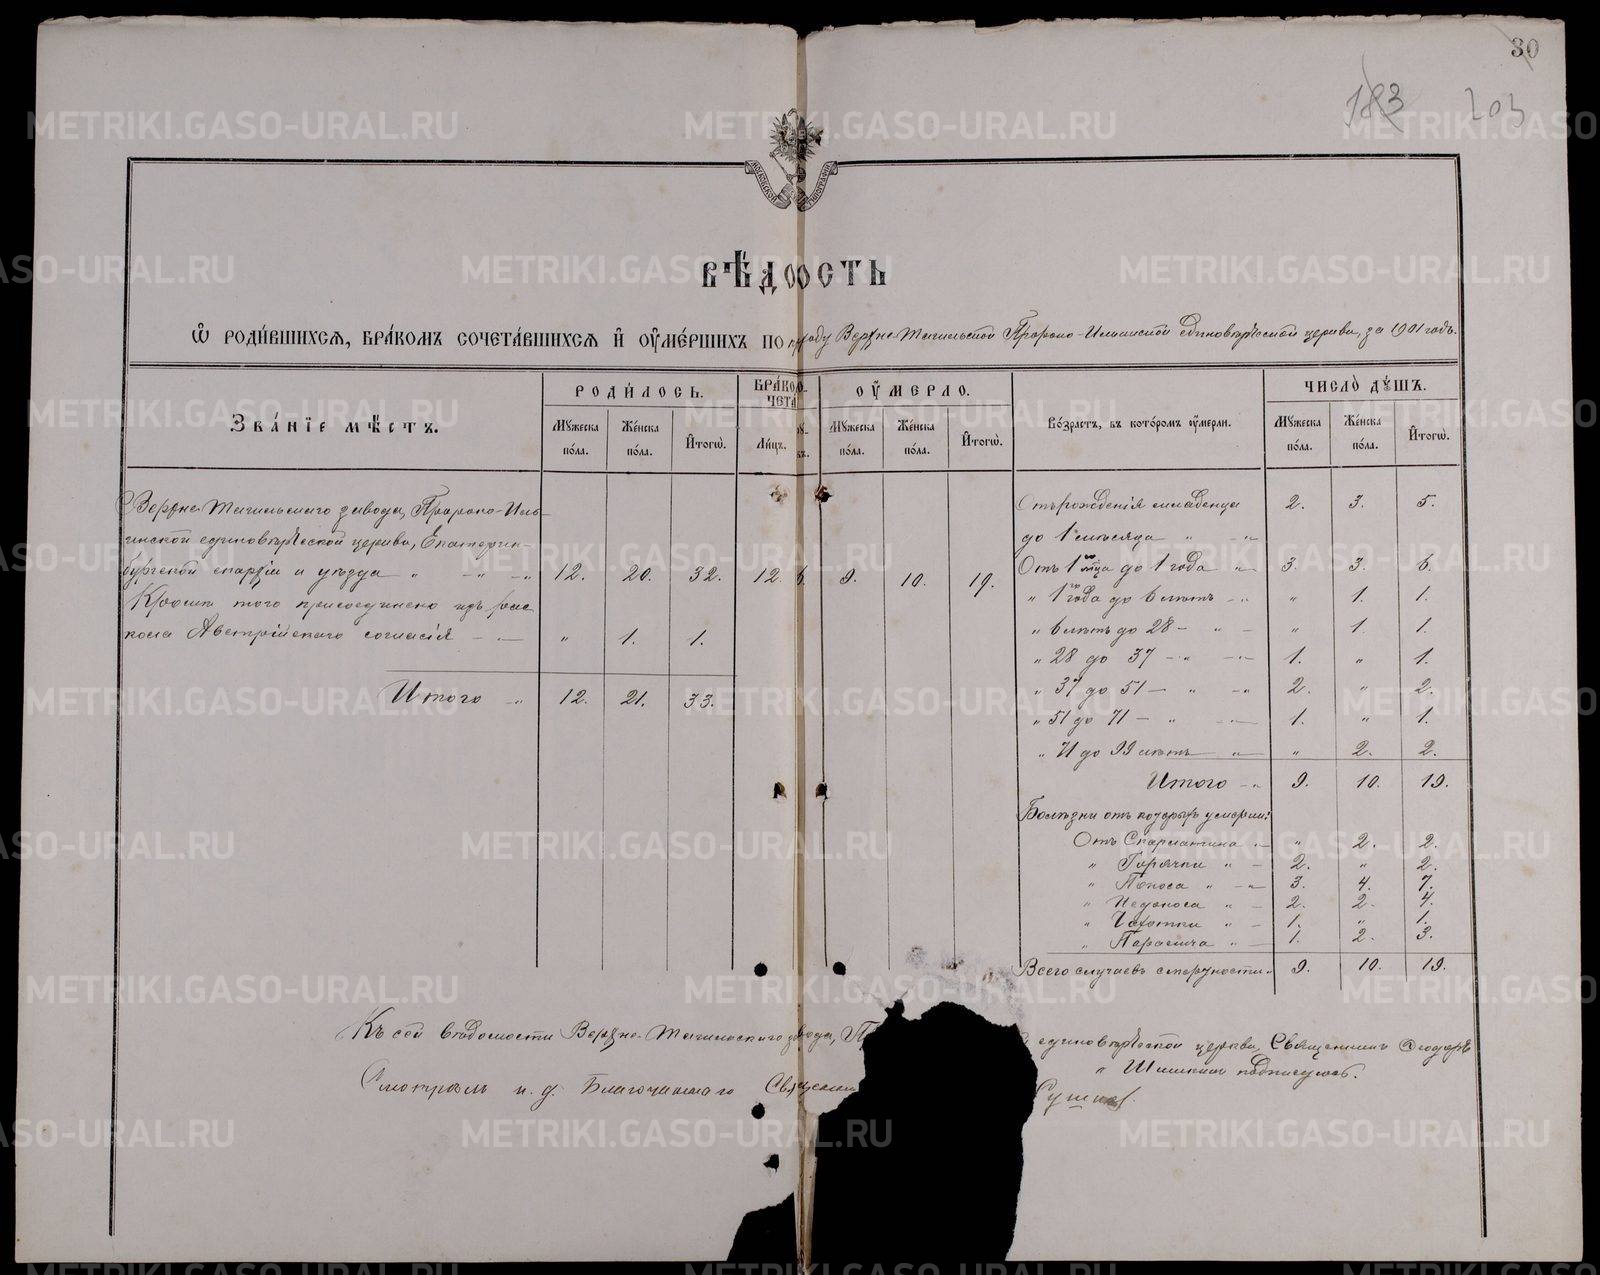 30
183 203
МОСКОВСКОЙ ТИПОГРАФІИ
ВѢДОМОСТЬ
Ѽ РОДИ́ВШИХСЯ, БРА́КОМЪ СОЧЕТА́ВШИХСЯ И҆ ОУ҆МЕ́РШИХЪ ПО приходу Верхне-Тагильской Пророко-Ильинской единовѣрческой церкви, за 1901 годъ.
ЗВА́НІЕ МѢ́СТЪ.
РОДИ́ЛОСЬ.
Мꙋжеска по́ла.
Же́нска по́ла.
И҆тогѡ̀.
БРА́КОМЪ СОЧЕТА
Ли́цъ.
ОУ҆́МЕРЛО.
Мꙋжеска по́ла.
Же́нска по́ла.
И҆тогѡ̀.
Во́зрастъ, въ кото́ромъ оу҆́мерли.
ЧИСЛО̀ ДꙊ́ШЪ.
Мꙋжеска по́ла.
Же́нска по́ла.
И҆тогѡ̀.
Верхне-Тагильскаго завода, Пророко-Иль-
инской единовѣрческой церкви, Екатерин-
бургской епархіи и уѣзда " —"— 12. 20. 32. 12. 6. 9. 10. 19.
Кромѣ того присоединено изъ рас
кола Австрійскаго согласія — — " 1. 1.
Итого —" 12. 21. 33.
Отъ рожденія младенца 2. 3. 5.
до 1 мѣсяца " —"
Отъ 1го мѣсяца до 1 года —" 3. 3. 6.
" 1го года до 6 лѣтъ —" " 1. 1.
" 6 лѣтъ до 28 — " — " 1. 1.
" 28 до 37 —" —" 1. " 1.
" 37 до 51 — " —" 2. " 2.
" 51 до 71 — " —" 1. " 1.
" 71 до 99 лѣтъ — " " 2. 2.
Итого —" 9. 10. 19.
Болѣзни отъ которыхъ умерли:
Отъ Скарлатина " — " 2. 2.
" Горячки " — 2. " 2.
" Поноса " —" 3. 4. 7.
" Недоноса " — 2. 2. 4.
" Чахотки " — 1. " 1.
" Паралича " — 1. 2. 3.
Всего случаевъ смертности " 9. 10. 19.
Къ сей вѣдомости Верхне-Тагильскаго завода, единовѣрческой церкви, Священникъ Ѳеодоръ
" Шишкинъ подписуюсь.
Смотрѣлъ и. д. Благочиннаго Священникъ